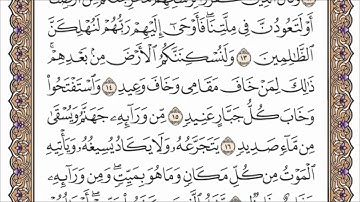 أَوْ لَتَعُودُنَّ فِى مِلَّتِنَا ۖ فَأَوْحَىٰٓ إِلَيْهِمْ رَبُّهُمْ لَنُهْلِكَنَّ
ٱلظَّٰلِمِينَ ١٣ وَلَنُسْكِنَنَّكُمُ ٱلْأَرْضَ مِنۢ بَعْدِهِمْ ۚ
ذَٰلِكَ لِمَنْ خَافَ مَقَامِى وَخَافَ وَعِيدِ ١٤ وَٱسْتَفْتَحُوا۟
وَخَابَ كُلُّ جَبَّارٍ عَنِيدٍ ١٥ مِّن وَرَآئِهِۦ جَهَنَّمُ وَيُسْقَىٰ
مِن مَّآءٍ صَدِيدٍ ١٦ يَتَجَرَّعُهُۥ وَلَا يَكَادُ يُسِيغُهُۥ وَيَأْتِيهِ
ٱلْمَوْتُ مِن كُلِّ مَكَانٍ وَمَا هُوَ بِمَيِّتٍ ۖ وَمِن وَرَآئِهِۦ